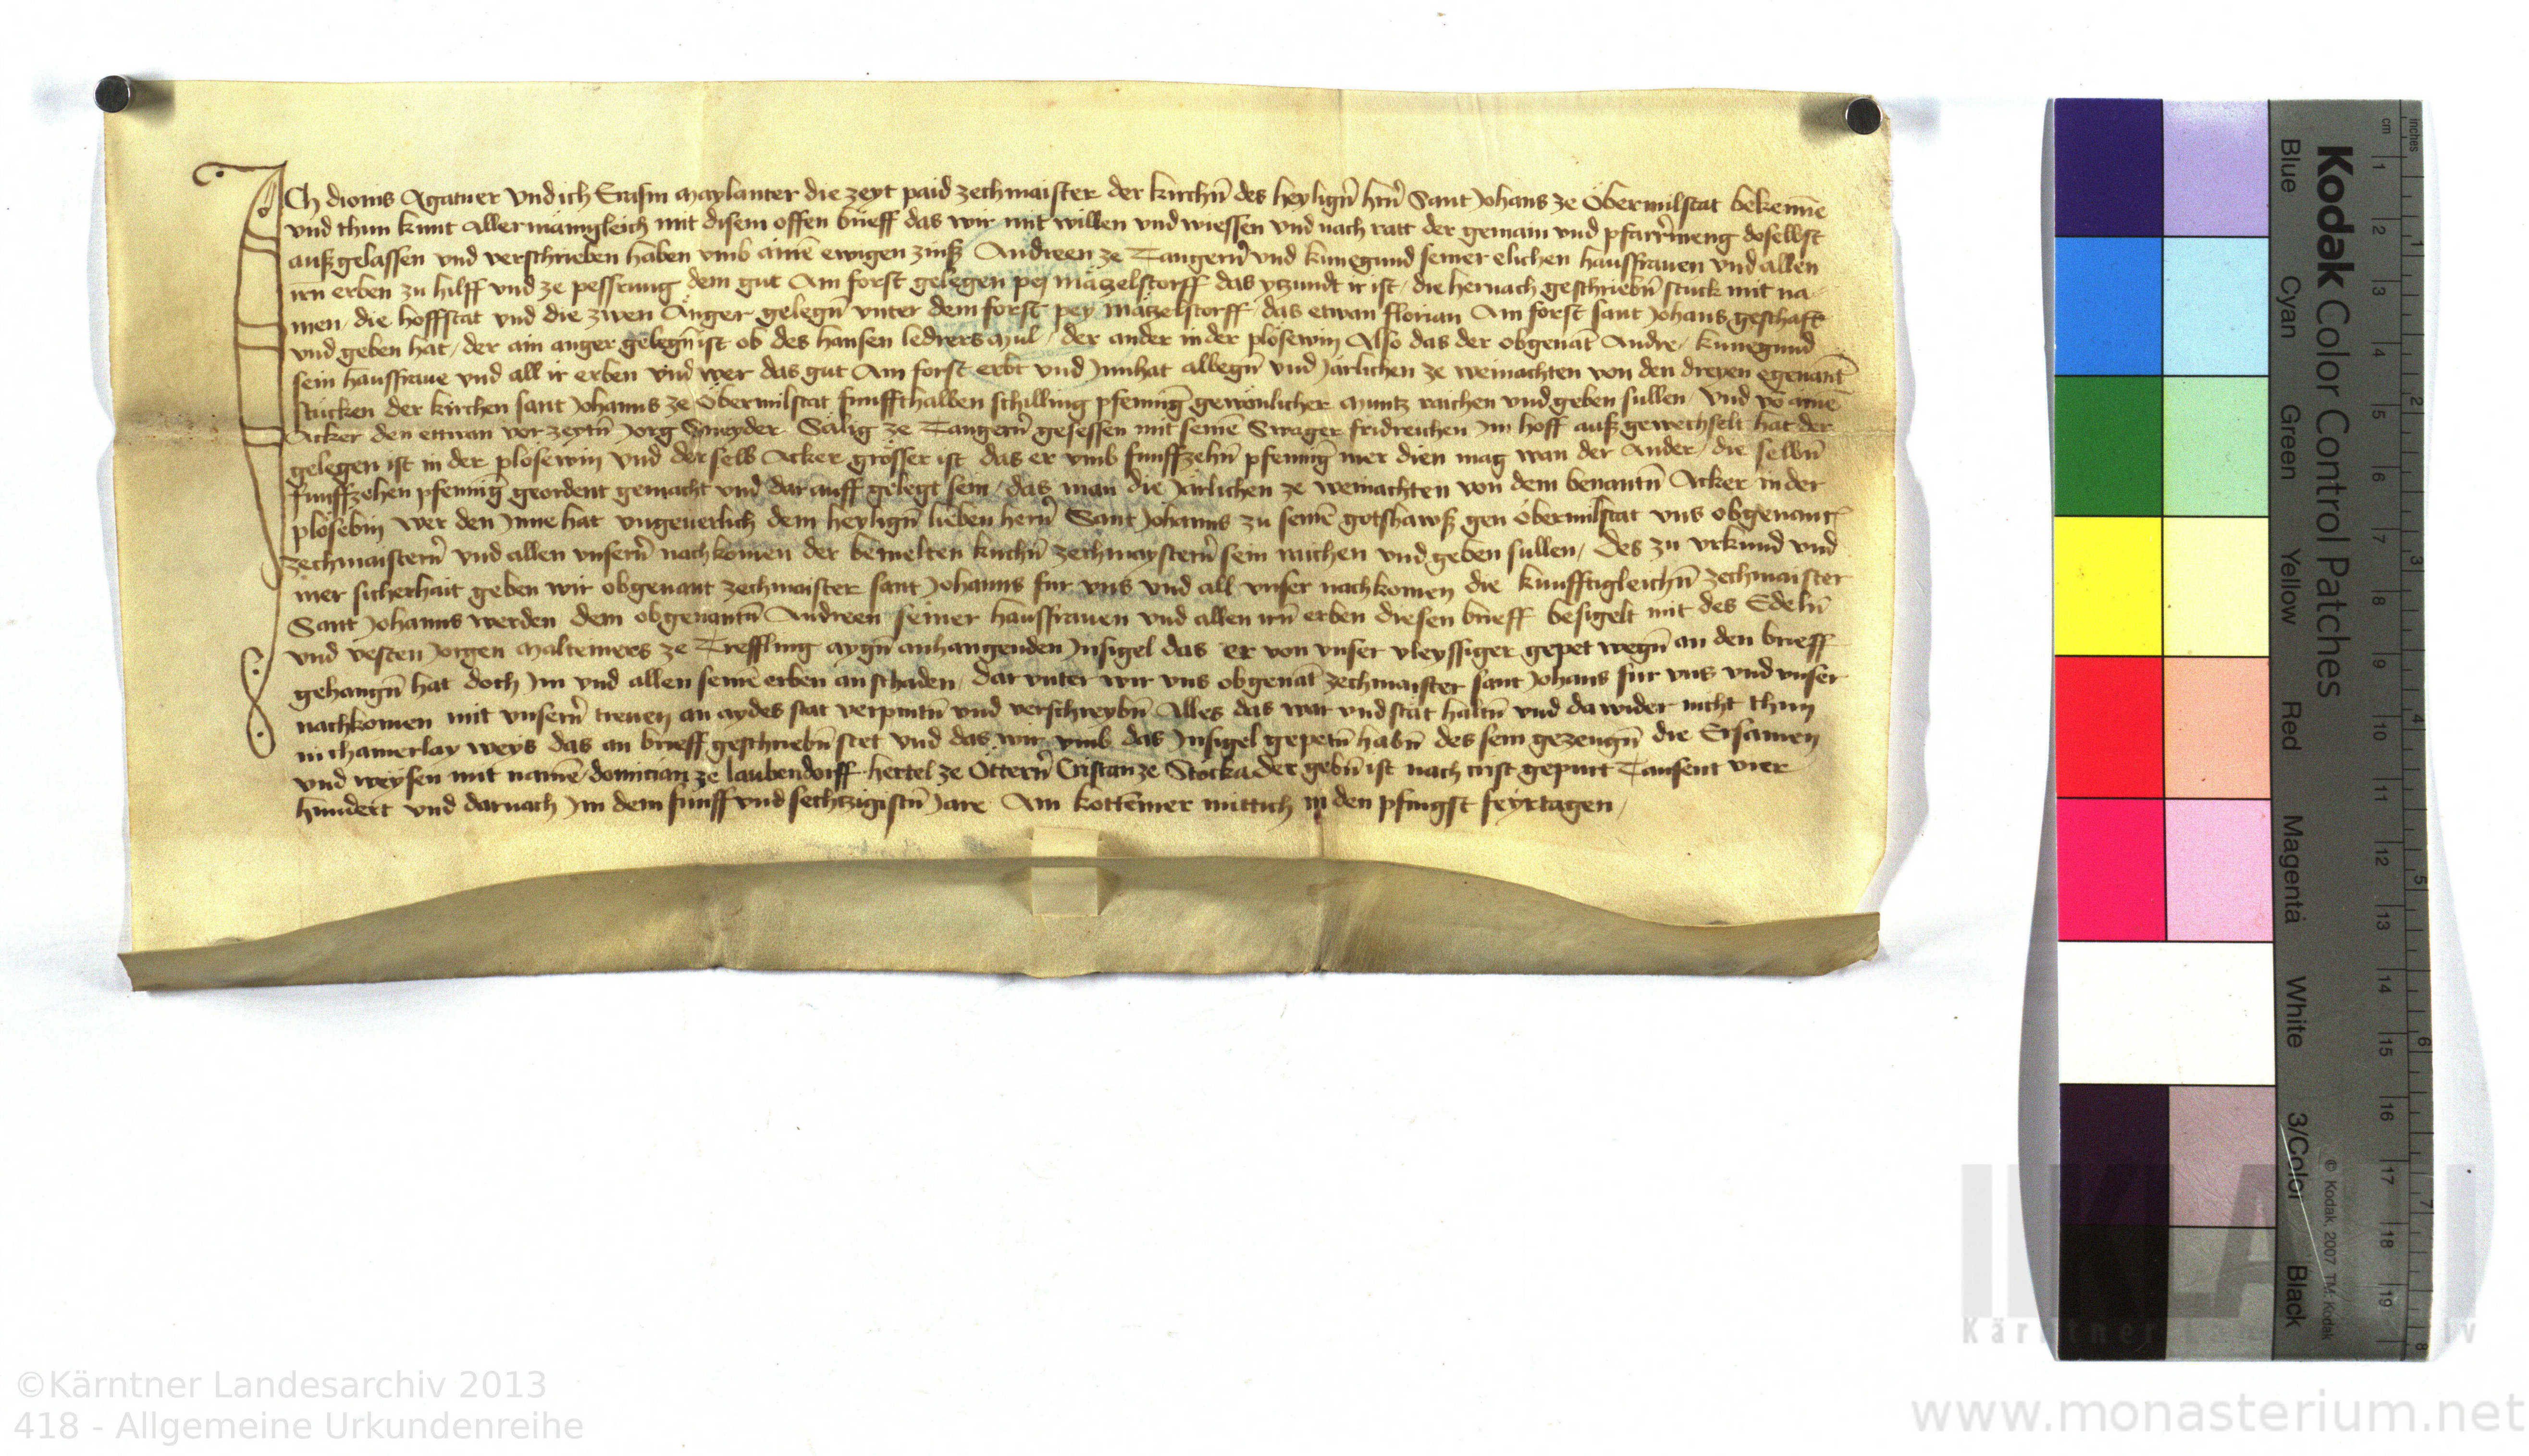 ICh dionis Agatner vnd ich Erasm Maylanter die zeyt paid zechmaister der kirchn̄ des heylign̄ hrn̄ Sant Johans ze Obermilstat bekenne
vnd thun kunt allermänigleich mit disem offen brieff das wir mit willen vnd wiessen vnd nach ratt der gemain vnd pfarrmeng doselbst
außgelassen vnd verschrieben haben vmb ainē ewigen zinß Andreen ze Tangern̄ vnd kunegund seiner elichen hausfrauen vnd allen
irn erben zu hilff vnd ze pessrung dem gut Am forst gelegen pej mätzelstorff das yzundt ir ist / die hernach geschriebn̄ stuck mit na-
men / die hoffstat vnd die zwen Anger gelegn̄ vnter dem forst pey mätzelstorff / das etwan florian Am forst sant Johans geschaft
vnd geben hat / der ain anger gelegn̄ ist ob des hansen ledrers Mul / der ander in der plösewin Also das der obgenāt Andre / kunegund
sein hausfraue vnd all ir erben vnd wer das gut Am forst erbt vnd Innhat allegn̄ vnd Järlichen ze weinachten von den dreyen egenant
stucken der kirchen sant Johanns ze Obermilstat funffthalben schilling pfennīg gewönlicher Muntz raichen vnd geben sullen / vnd vō aine
Acker den ettwan vor zeytn̄ Jorg Sneyder Sälig ze Tangern̄ gesessen mit seinē Swager fridreichen Im hoff außgewechselt hat der
gelegen ist in der plösewin vnd derselb Acker grösser ist das er vmb funffzehn̄ pfennīg mer dien mag wan der Ander / die selbn̄
funffzehen pfennīg geordent gemacht vnd darauff gelegt sein / das man die Järlichen ze weinachten von dem benantn̄ Acker in der
plösebin wer den Inne hat vngeuerlich dem heylign̄ lieben hern̄ Sant Johanns zu seinē gotshawß gen obermilstat vns obgenant
zechmaistern̄ vnd allen vnsern̄ nachkomen der bemelten kirchn̄ zechmaystern̄ sein raichen vnd geben sullen / des zu vrkund vnd
mer sicherhait geben wir obgenant zechmaister sant Johanns fur vns vnd all vnser nachkomen die kunfftigleichn̄ zechmaister
Sant Johanns werden dem obgenantn̄ Andreen seiner hausfrauen vnd allen irn̄ erben diesen brieff besigelt mit des Edeln̄
vnd vesten Jorgen Malteiners ze Treffling aygn̄ anhangenden Insigel das er von vnser vleyssiger gepet wegn̄ an den brieff
gehangn̄ hat doch Im vnd allen seinē erben an schaden / dar vnter wir vns obgenāt zechmaister sant Johans fur vns vnd vnser
nachkomen mit vnsern̄ treuen an aydes stat verpintn̄ vnd verschreybn̄ Alles das war vnd stät haltn̄ vnd da wider nicht thun
in chainerlay weys das an brieff geschriebn̄ stet vnd das wir vmb das Insigel gepetn̄ habn̄ des sein gezeugn̄ die Ersamen
vnd weysen mit namē / domician ze laubendorff hertel ze Ottern̄ Cristan ze Stocka der gebn̄ ist nach crist gepurt Tausent vier
hundert vnd darnach Im dem funff vnd sechtzigistn̄ Jare Am kottemer mittich in den pfingst feyrtagen /
Kodak Color Control Patches
Blue Cyan Green Yellow Red Magenta White 3/Color Black
© Kodak, 2007 TM: Kodak
cm 1 2 3 4 5 6 7 8 9 10 11 12 13 14 15 16 17 18 19
inches 1 2 3 4 5 6 7 8
Kärntner Landesarchiv
©Kärntner Landesarchiv 2013
418 - Allgemeine Urkundenreihe
www.monasterium.net